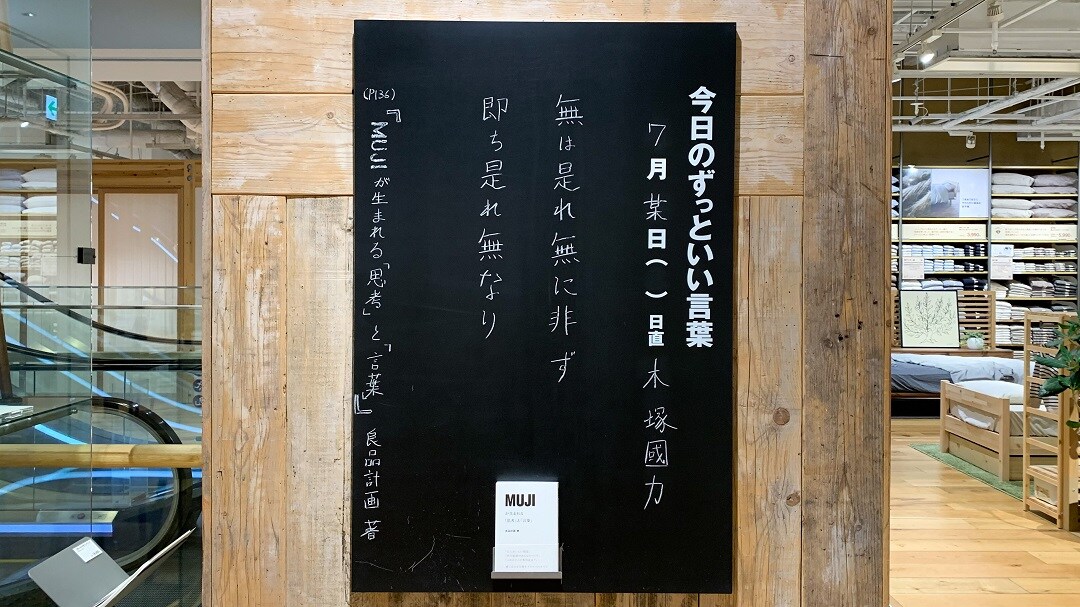 今日のずっといい言葉
7月某日( )日直 木塚國力
無は是れ無に非ず
即ち是れ無なり
『MUJIが生まれる「思考」と「言葉」』良品計画 著
(P136)
MUJI
が生まれる
「思考」と「言葉」